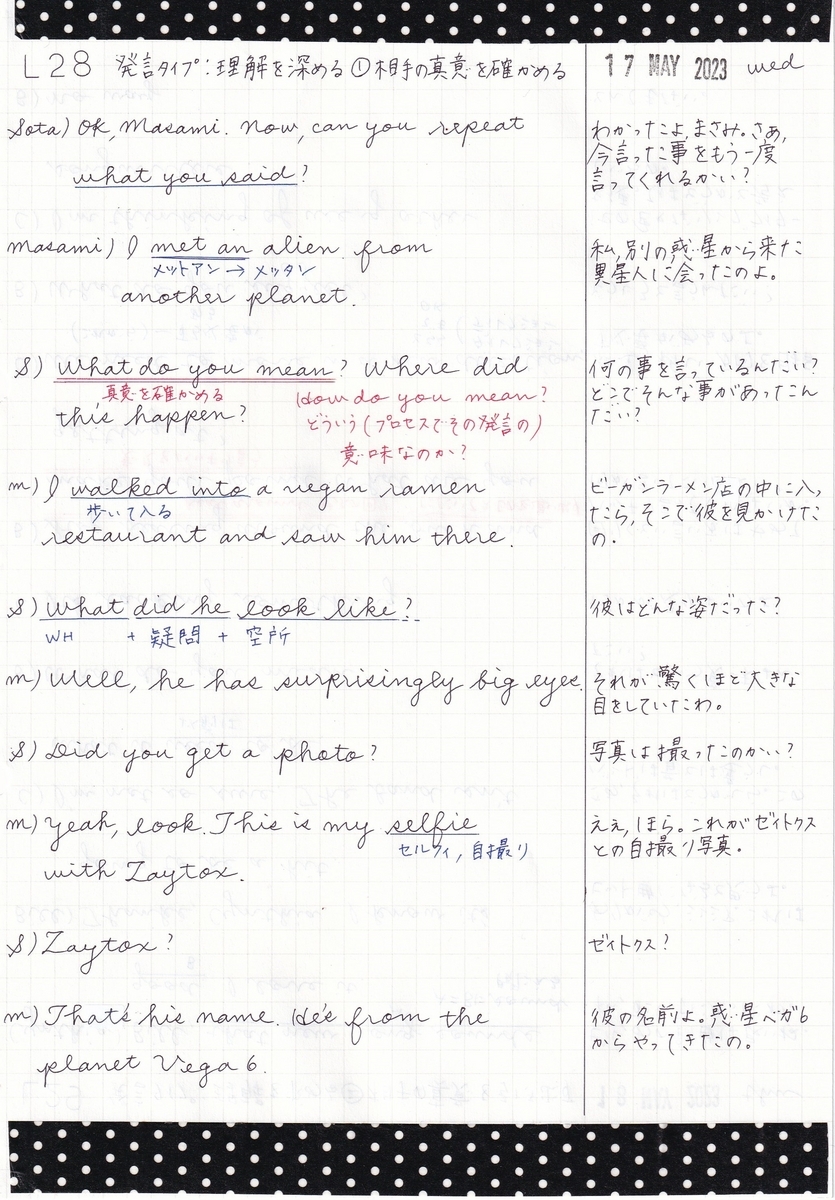 L28 発言タイプ:理解を深める①相手の真意を確かめる
17 MAY 2023 wed
Sota) OK, Masami. Now, can you repeat
what you said?
わかったよ,まさみ。さあ,
今言った事をもう一度
言ってくれるかい?
Masami) I met an alien from
メットアン→メッタン
another planet.
私,別の惑星から来た
異星人に会ったのよ。
S) What do you mean? Where did
真意を確かめる
How do you mean?
this happen?
どういう(プロセスでその発言の)
意味なのか?
何の事を言っているんだい?
どこでそんな事があったん
だい?
m) I walked into a vegan ramen
歩いて入る
restaurant and saw him there.
ビーガンラーメン店の中に入っ
たら,そこで彼を見かけた
の.
S) What did he look like?
WH + 疑問 + 空所
彼はどんな姿だった?
m) Well, he has surprisingly big eyes.
それが驚くほど大きな
目をしていたわ。
S) Did you get a photo?
写真は撮ったのかい?
m) Yeah, look. This is my selfie
セルフィ,自撮り
with Zaytox.
ええ,ほら。これがゼイトクス
との自撮り写真.
S) Zaytox?
ゼイトクス?
m) That's his name. He's from the
planet Vega 6.
彼の名前よ。惑星ベガ6
からやってきたの。